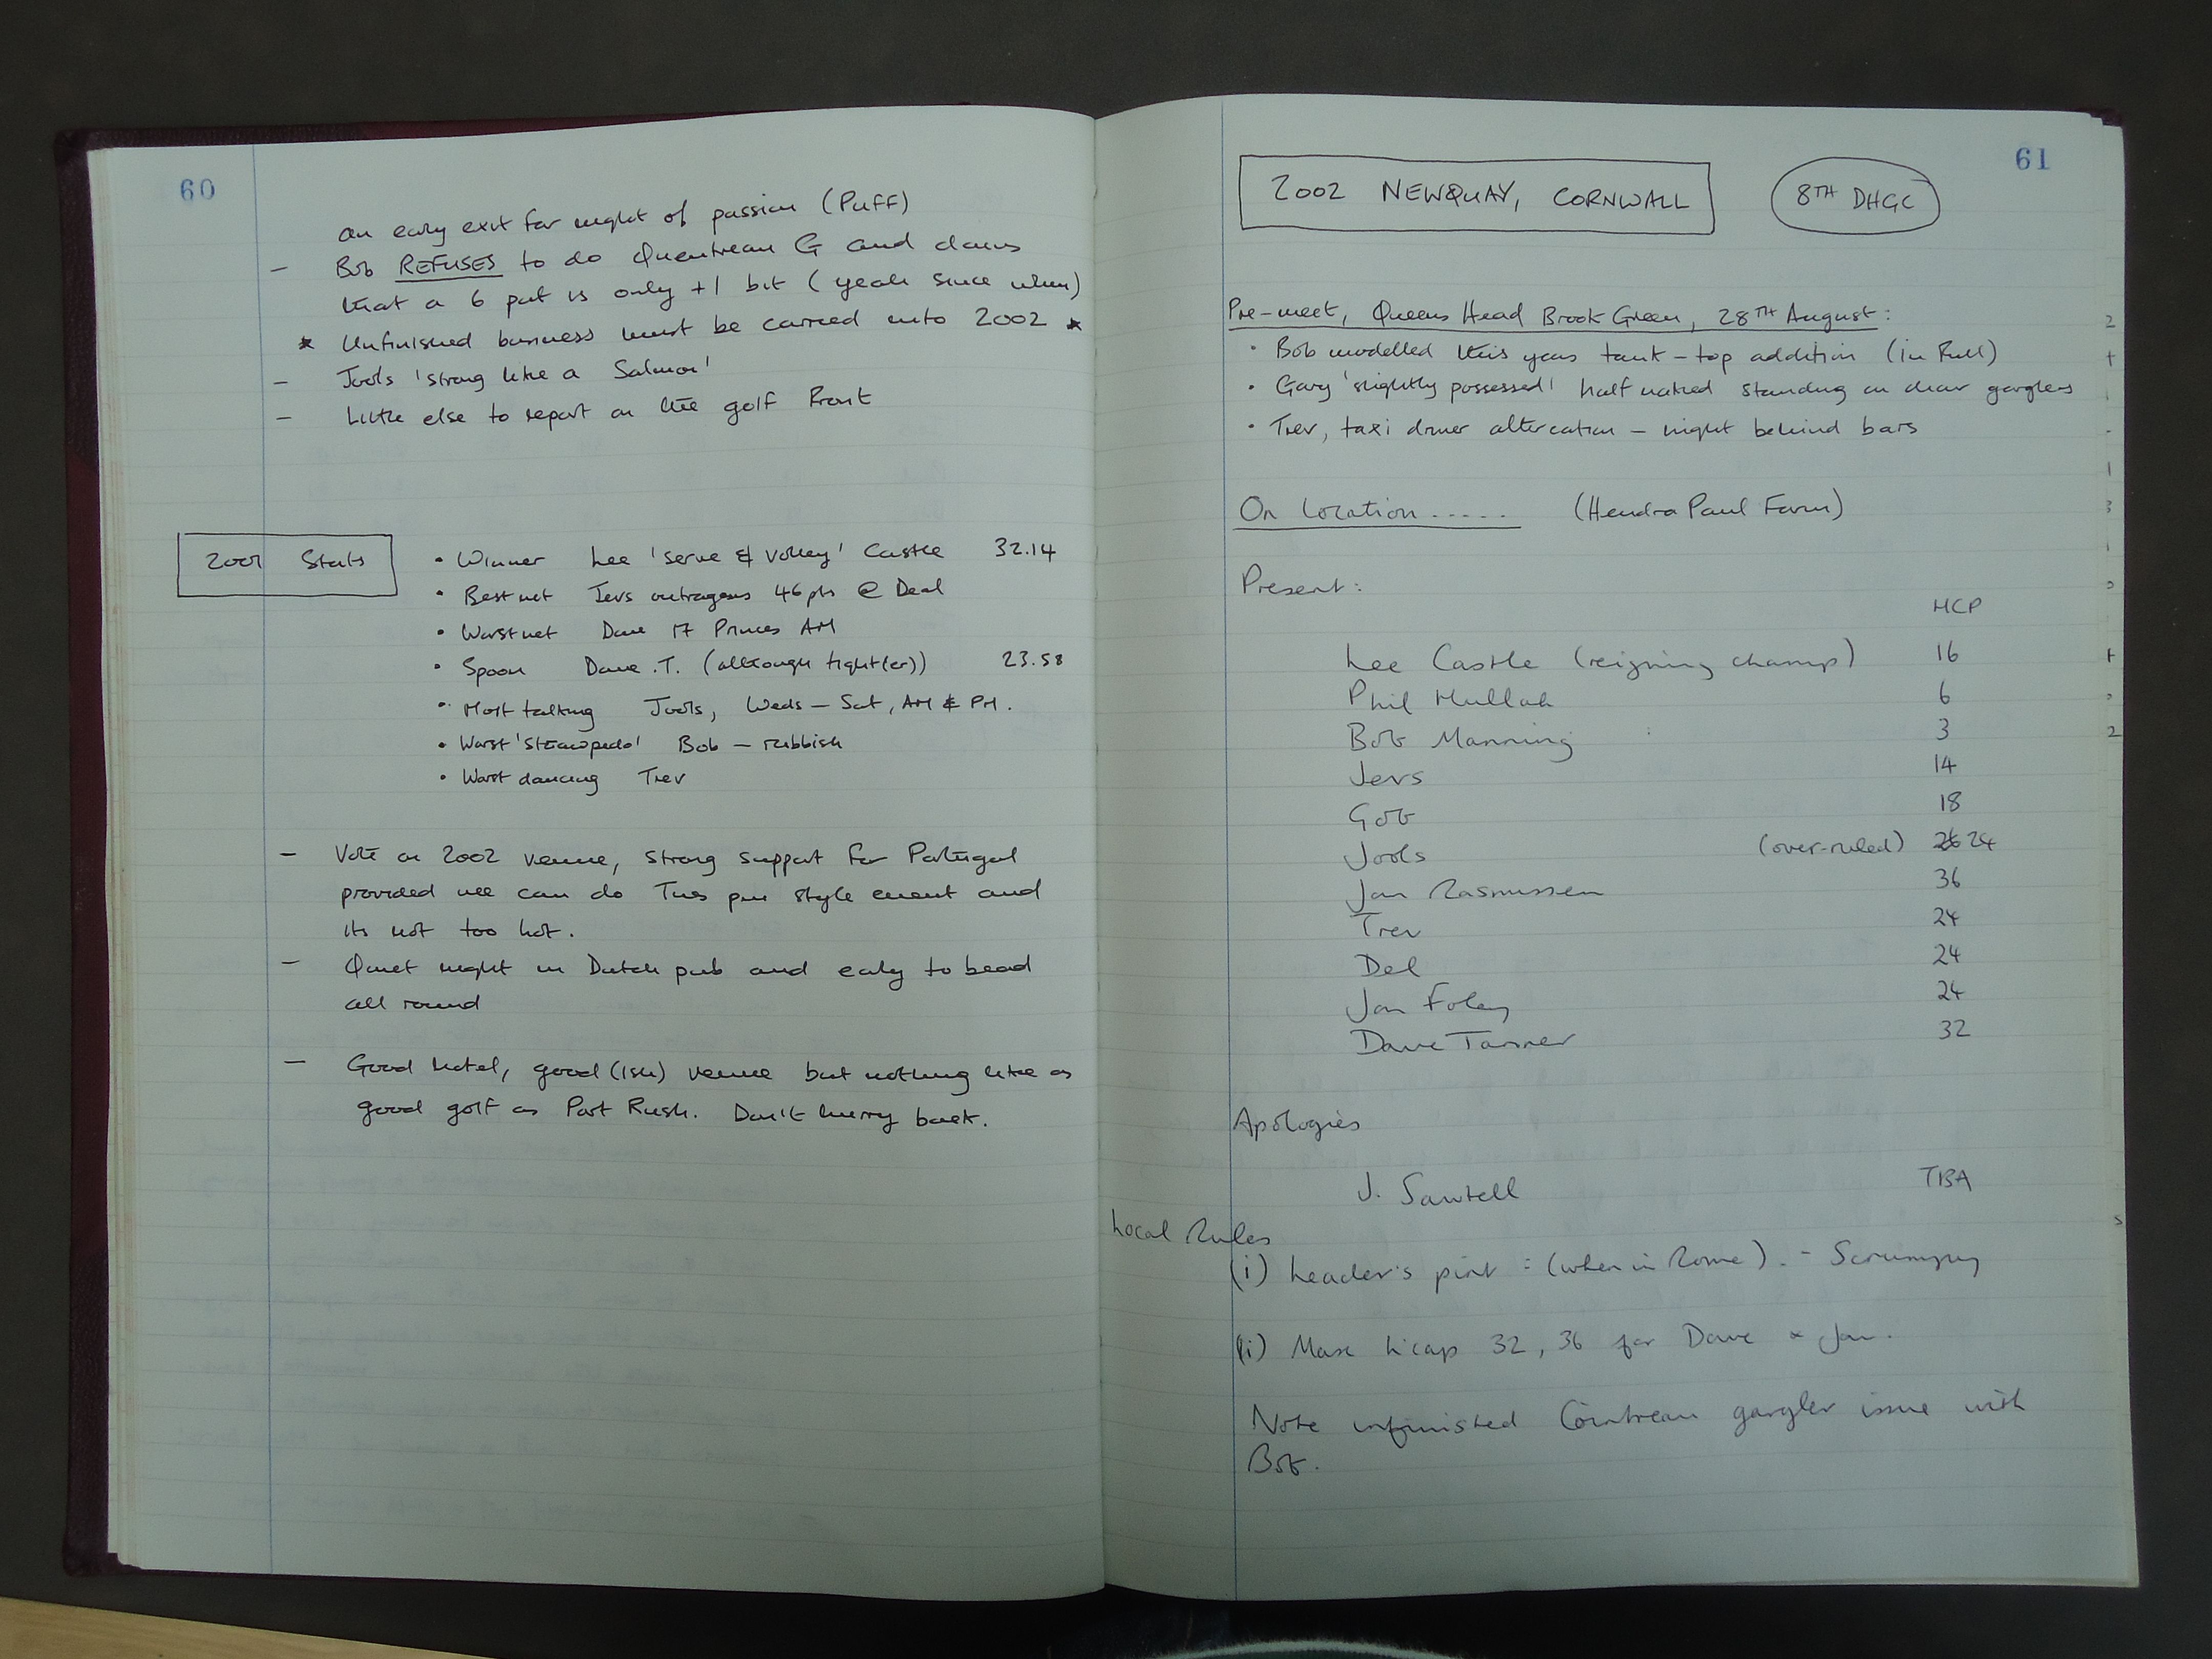 60
an early exit for night of passion (Puff)
- Bob REFUSES to do Quentreau G and claims
that a 6 put is only +1 bit (yeah since when)
* Unfinished business must be carried into 2002 *
- Jools 'strong like a Salmon'
- Little else to report on the golf front
2001 Stats
• Winner Lee 'serve & volley' Castle 32.14
• Best net Jevs outrageous 46 pts @ Deal
• Worst net Dave 17 Princes AM
• Spoon Dave .T. (although tight(er)) 23.58
• Most talking Jools, Weds - Sat, AM & PM.
• Worst 'Strawpedo' Bob - rubbish
• Worst dancing Trev
- Vote on 2002 venue, strong support for Portugal
provided we can do Tues pm style event and
its not too hot.
- Quiet night in Dutch pub and early to bead
all round
- Good hotel, good (ish) venue but nothing like as
good golf as Port Rush. Don't hurry back.
61
2002 NEWQUAY, CORNWALL
8TH DHGC
Pre-meet, Queens Head Brook Green, 28TH August:
• Bob modelled this years tank-top addition (in full)
• Gary 'slightly possessed' half naked standing on chair garglers
• Trev, taxi driver altercation - night behind bars
On Location ..... (Hendra Paul Farm)
Present:
HCP
Lee Castle (reigning champ) 16
Phil Mullah 6
Bob Manning 3
Jevs 14
Gob 18
Jools (over-ruled) 26 24
Jan Rasmussen 36
Trev 24
Del 24
Jon Foley 24
Dave Tanner 32
Apologies
J. Sawtell TBA
Local Rules
(i) Leader's pint : (when in Rome). - Scrumpy
(ii) Max h'cap 32, 36 for Dave & Jan.
Note unfinished Cointreau gargler issue with
Bob.